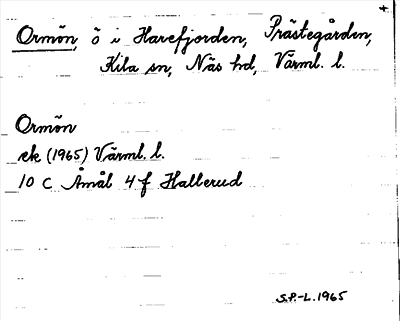 Ormön, ö i Harefjorden, Prästegården,
Kila sn, Näs hd, Värml. l.
Ormön
ek (1965) Värml. l.
10 C Åmål 4f Hallerud
S.P.-L. 1965